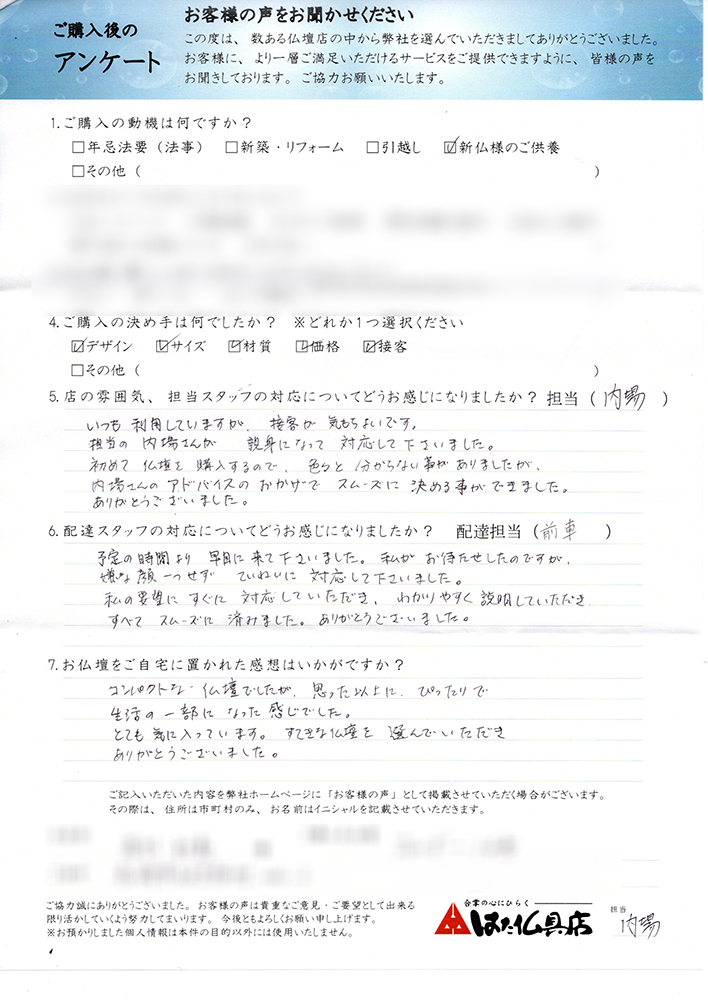 ご購入後の
アンケート
お客様の声をお聞かせください
この度は、数ある仏壇店の中から弊社を選んでいただきましてありがとうございました。
お客様に、より一層ご満足いただけるサービスをご提供できますように、皆様の声を
お聞きしております。ご協力お願いいたします。
1.ご購入の動機は何ですか？
□年忌法要（法事） □新築・リフォーム □引越し ☑新仏様のご供養
□その他（ ）
4.ご購入の決め手は何でしたか？ ※どれか1つ選択ください
☑デザイン ☑サイズ ☑材質 ☑価格 ☑接客
□その他（ ）
5.店の雰囲気、担当スタッフの対応についてどうお感じになりましたか？担当（内場）
いつも利用していますが、接客が気もちよいです。
担当の内場さんが 親身になって対応して下さいました。
初めて仏壇を購入するので、色々と分からない事がありましたが、
内場さんのアドバイスのおかげでスムーズに決める事ができました。
ありがとうございました。
6.配達スタッフの対応についてどうお感じになりましたか？ 配達担当（前車）
予定の時間より早目に来て下さいました。私がお待たせしたのですが、
嫌な顔一つせず ていねいに対応して下さいました。
私の要望にすぐに対応していただき、わかりやすく説明していただき
すべてスムーズに済みました。ありがとうございました。
7.お仏壇をご自宅に置かれた感想はいかがですか？
コンパクトな仏壇でしたが、思った以上に、ぴったりで
生活の一部になった感じでした。
とても気に入っています。すてきな仏壇を選んでいただき
ありがとうございました。
ご記入いただいた内容を弊社ホームページに「お客様の声」として掲載させていただく場合がございます。
その際は、住所は市町村のみ、お名前はイニシャルを記載させていただきます。
ご協力誠にありがとうございました。お客様の声は貴重なご意見・ご要望として出来る
限り活かしていくよう努力してまいります。今後ともよろしくお願い申し上げます。
※お預かりしました個人情報は本件の目的以外には使用いたしません。
合掌の心にひらく
はた仏具店
担当
内場